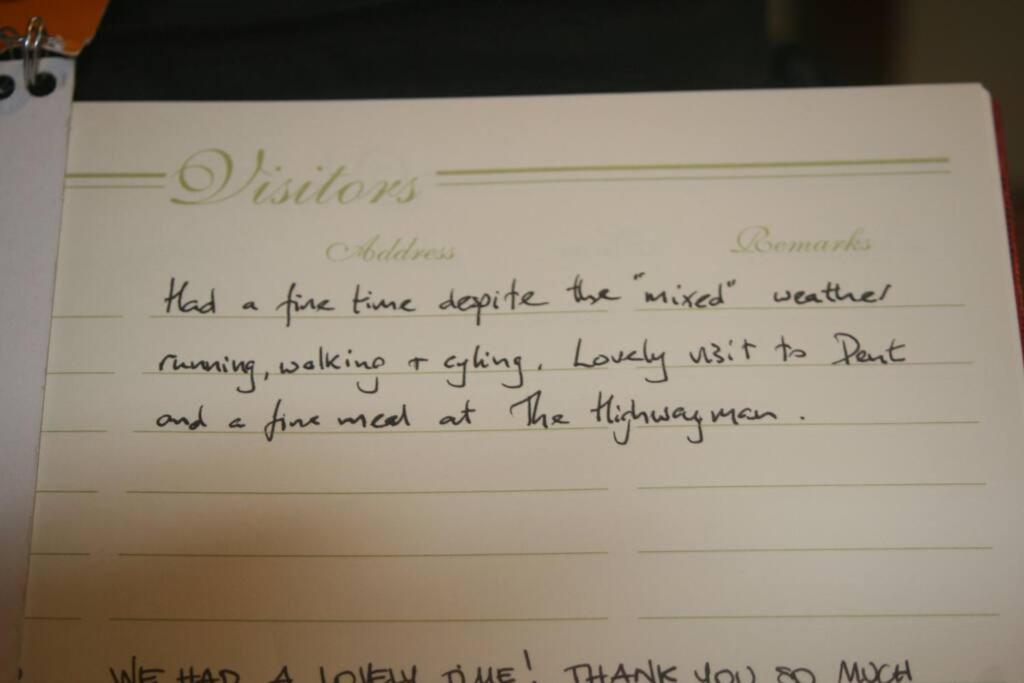 Visitors
Address Remarks
Had a fine time despite the "mixed" weather
running, walking + cyling. Lovely visit to Dent
and a fine meal at The Highwayman.
WE HAD A LOVELY TIME! THANK YOU SO MUCH